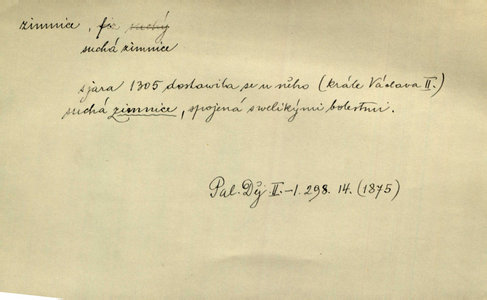 zimnice, f. suchý
suchá zimnice
s jara 1305 dostavila se u něho (krále Václava II.)
suchá zimnice, spojená s velikými bolestmi.
Pal. Děj. II.-1. 298. 14. (1875)